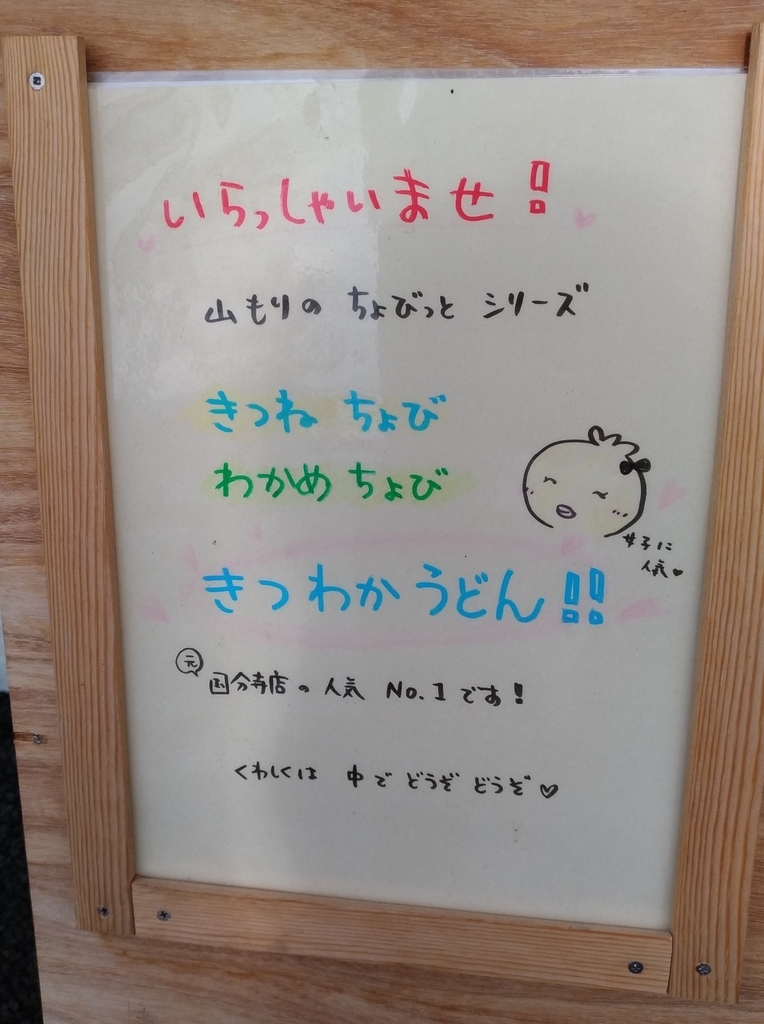 いらっしゃいませ!
山もりの ちょびっと シリーズ
きつね ちょび
わかめ ちょび
女子に
人気♥
きつわかうどん!!
元 国分寺店の人気 No.1です!
くわしくは 中で どうぞ どうぞ♡